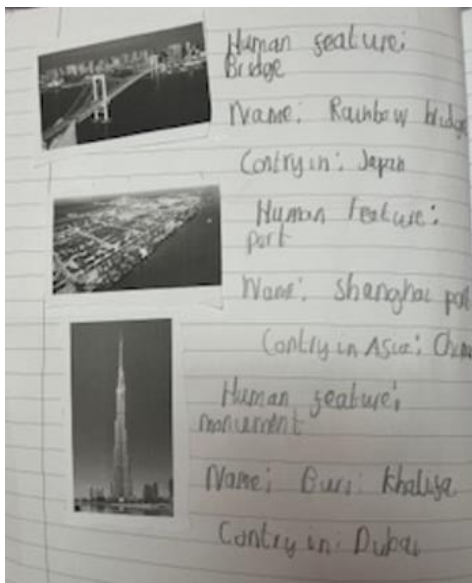 Human feature:
Bridge
Name: Rainbow bridge
Contry in: Japan
Human Feature:
port
Name: Shanghai port
Contry in Asia: China
Human feature:
monument
Name: Burj Khalifa
Contry in: Dubai